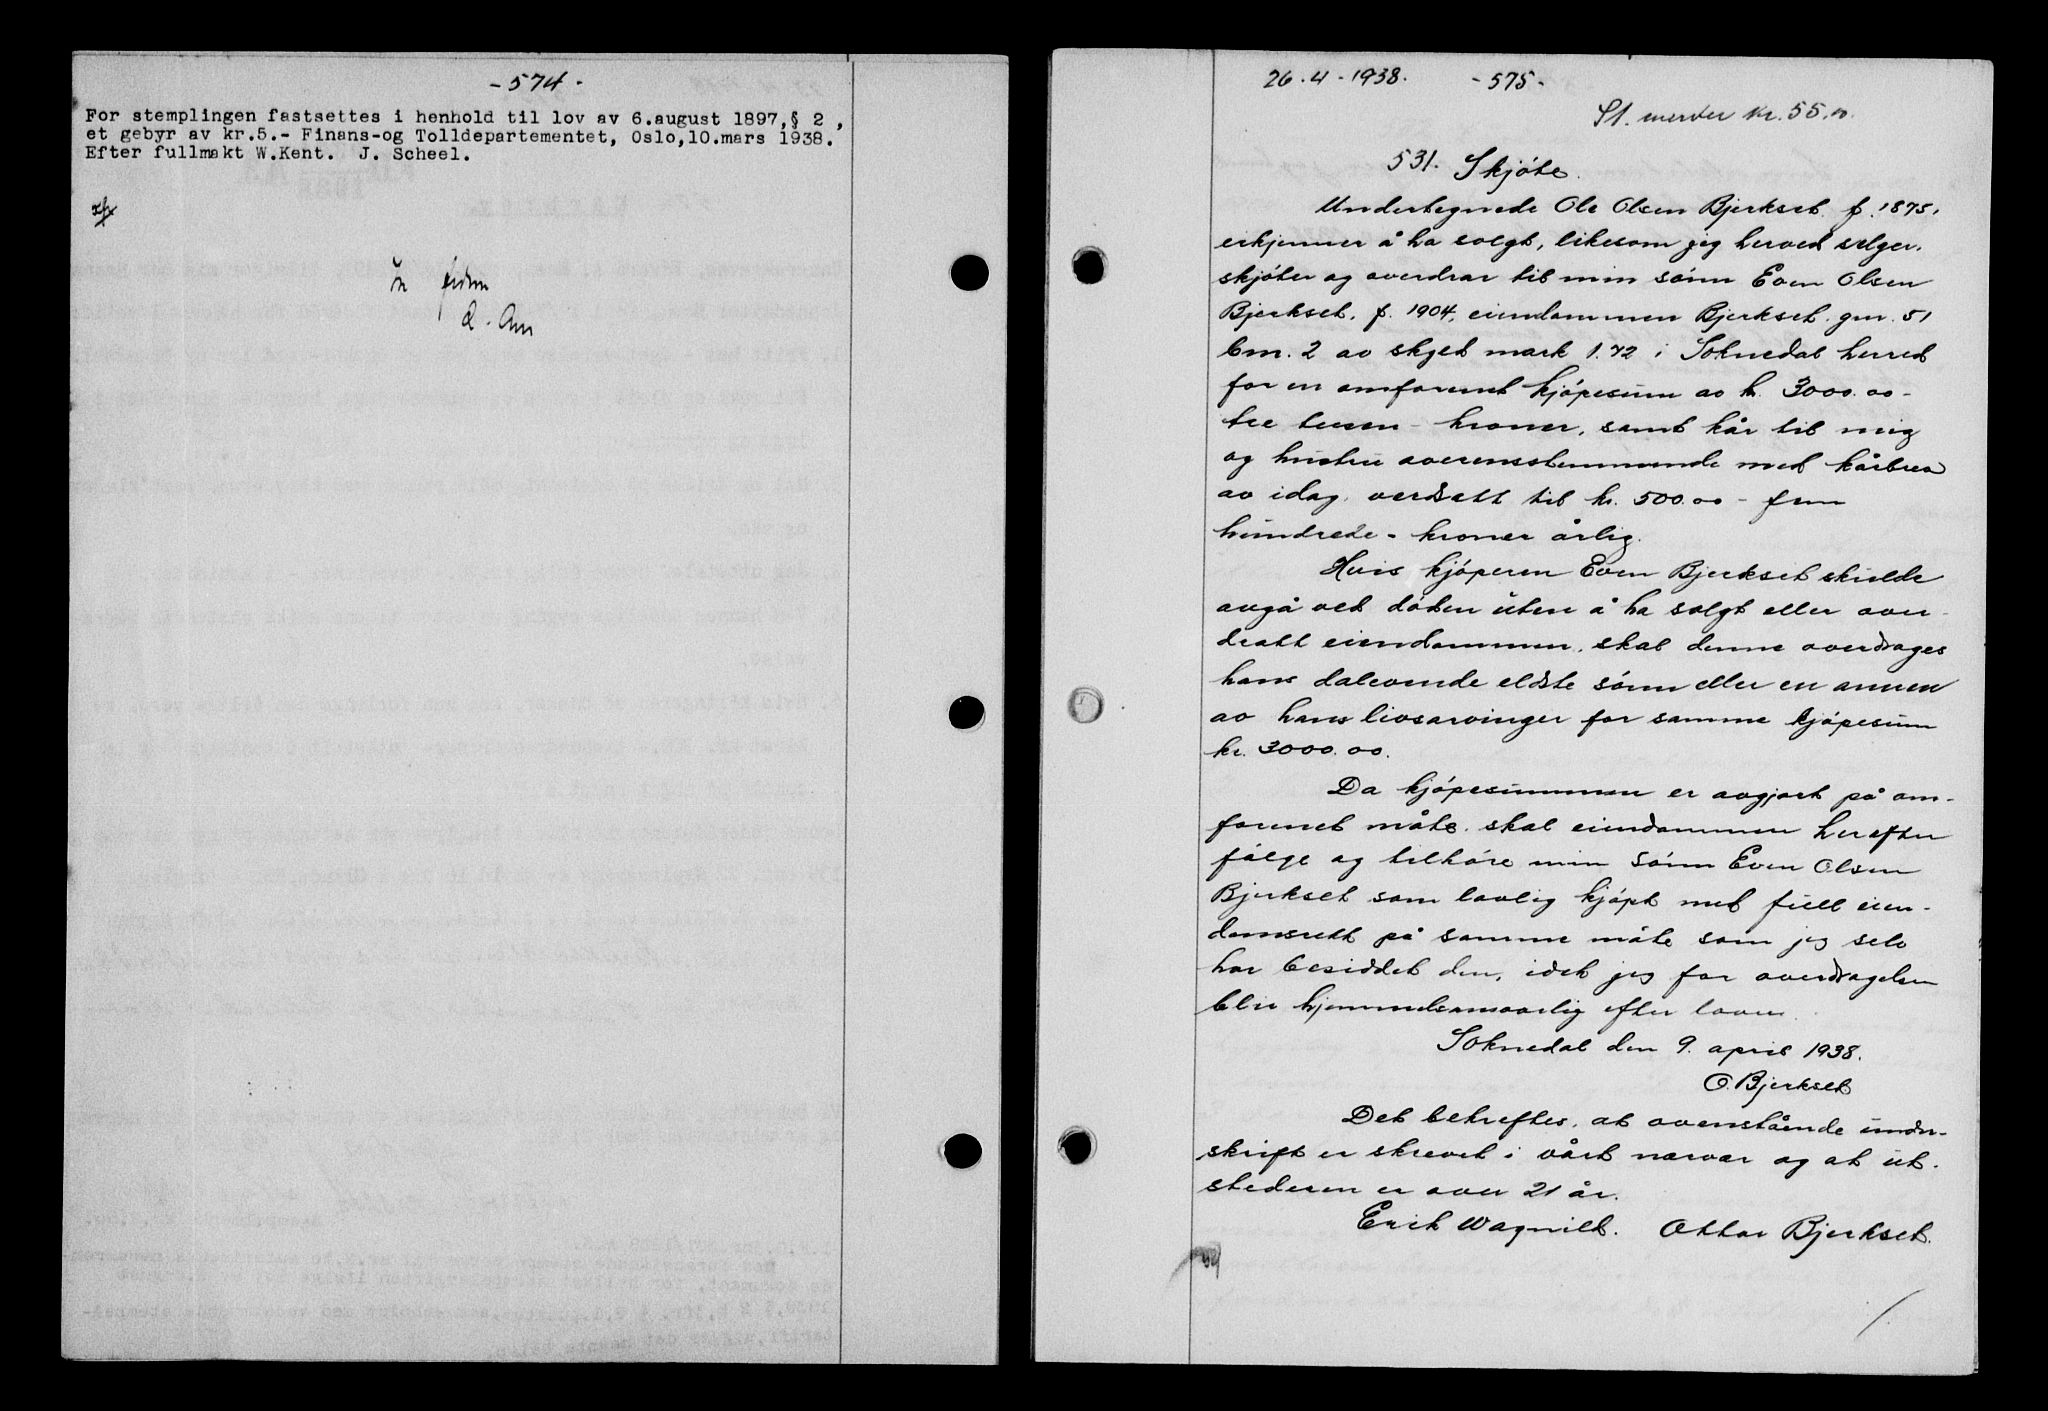 - 574 -
For stemplingen fastsettes i henhold til lov av 6.august 1897,§ 2,
et gebyr av kr.5.- Finans-og Tolldepartementet, Oslo,10.mars 1938.
Efter fullmakt W.Kent. J. Scheel.
26.4.-1938. - 575 -
St. merker kr. 55.00
531. Skjöte.
Undertegnede Ole Olsen Bjerkset f. 1875,
erkjenner å ha solgt, likesom jeg herved selger,
skjöter og overdrar til min sönn Even Olsen
Bjerkset, f. 1904, eiendommen Bjerkset gnr. 51
bnr. 2 av skyld mark 1.72 i Soknedal herred
for en omforenet kjöpesum av kr. 3000.00 -
tre tusen - kroner, samt kår til mig
og hustru overensstemmende med kårbrev
av idag, verdsatt til kr. 500.00 - fem
hundrede - kroner årlig.
Hvis kjöperen Even Bjerkset skulde
avgå ved döden uten å ha solgt eller over-
dratt eiendommen, skal denne overdrages
hans dalevende eldste sönn eller en annen
av hans livsarvinger for samme kjöpesum
kr. 3000.00.
Da kjöpesummen er avgjort på om-
forenet måte, skal eiendommen herefter
fölge og tilhöre min sönn Even Olsen
Bjerkset som lovlig kjöpt med full eien-
domsrett på samme måte som jeg selv
har besiddet den, idet jeg for overdragelsen
blir hjemmelsansvarlig efter loven.
Soknedal den 9. april 1938.
O. Bjerkset
Det bekreftes, at ovenstående under-
skrift er skrevet i vårt nærvær og at ut-
stederen er over 21 år.
Erik Wagnild. Ottar Bjerkset.